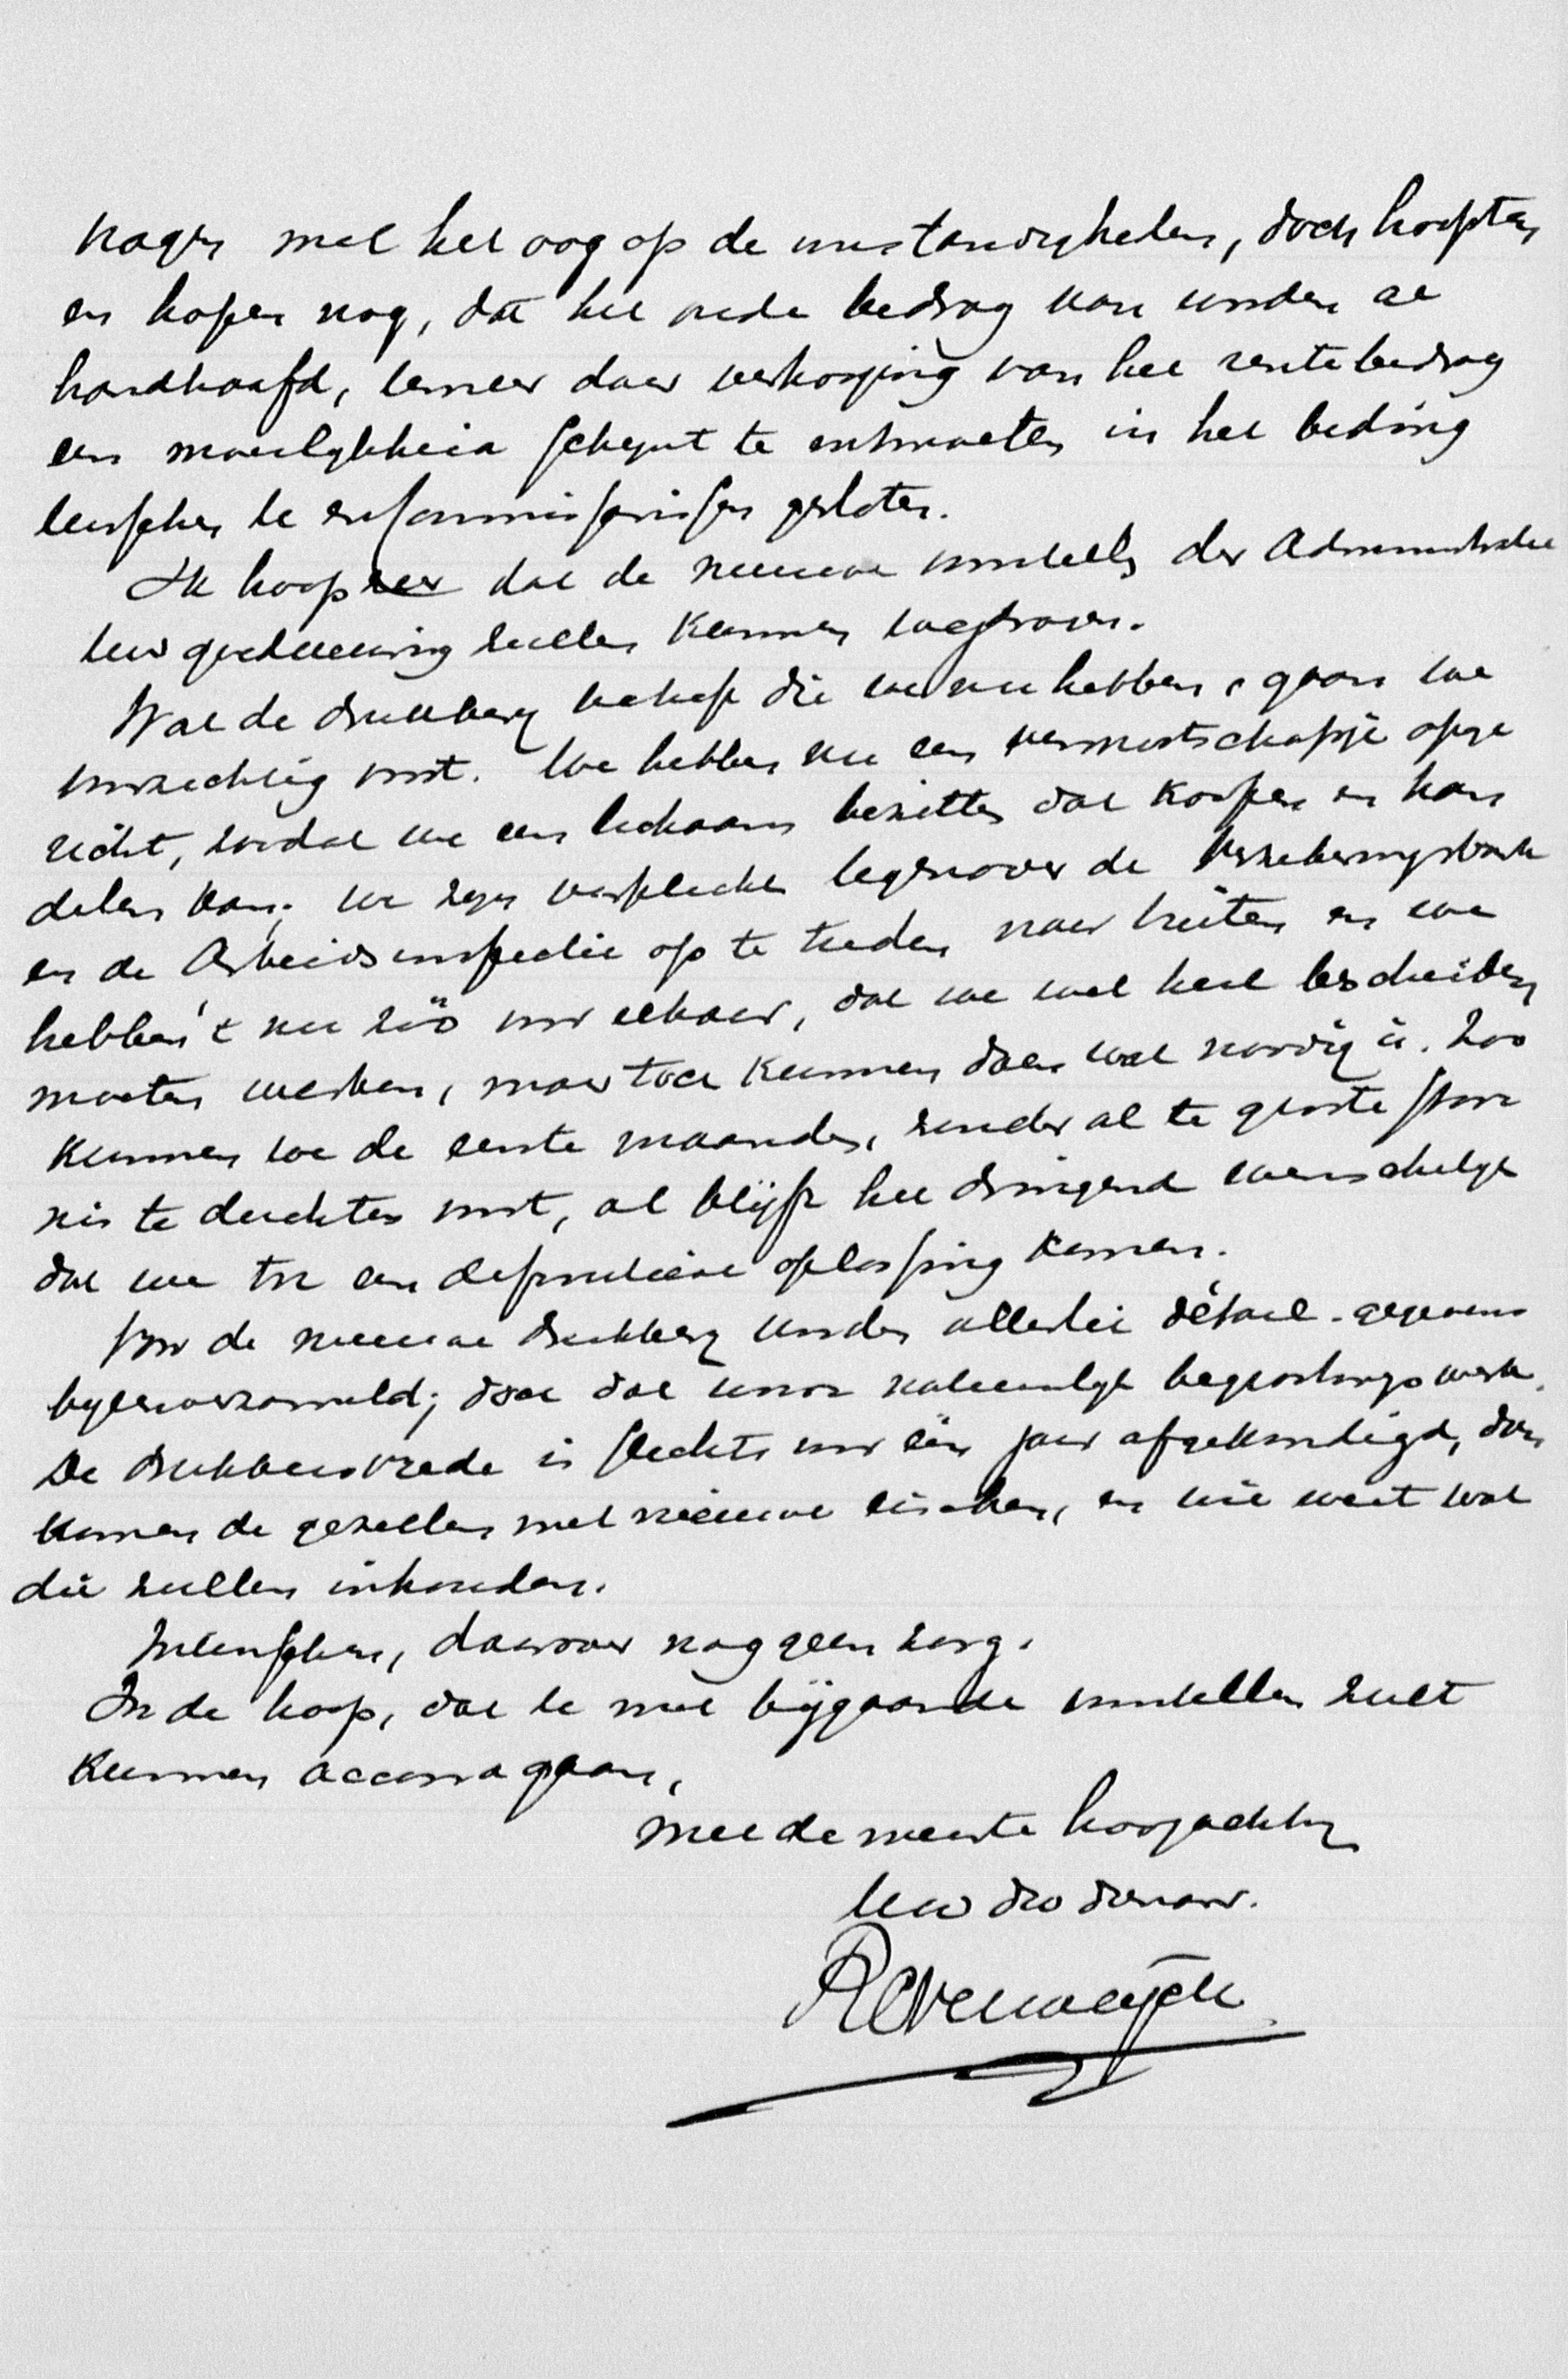 hager met het oog op de omstandigheden, doch hoopten
en hopen nog, dat het oude bedrag kan worden ge
handhaafd, temeer daar verhooging van het rentebedrag
een moeilykheid schynt te ontmoeten in het beding
tusschen de commissarissen gesloten.
Ik hoop zeer dat de nieuwe voorstellen der Administratie
Uw goedkeuring zullen kunnen wegdragen.
Wat de drukkery betreft die we nu hebben, gaan we
voorzichtig voort. We hebben nu een vennootschapje opge
richt, zoodat we een lichaam bezitten dat koopen en han
delen kan; we zyn verplicht tegenover de Verzekeringsbank
en de Arbeidsinspectie op te treden naar buiten en we
hebben 't nu zóó voor elkaar, dat we wel heel bescheiden
moeten werken, maar toch kunnen doen wat noodig is. Zoo
kunnen we de eerste maanden, zonder al te groote stoor
nis te duchten voort, al blijft het dringend wenschelyk
dat we tot een definitieve oplossing komen.
Voor de nieuwe drukkery worden allerlei détail-gegevens
byeenverzameld; doch dat wordt natuurlyk begrootingswerk.
De drukkersvrede is slechts voor één jaar afgekondigd, dan
komen de gezellen met nieuwe eischen, en wie weet wat
die zullen inhouden.
Intusschen, daarover nog geen zorg.
In de hoop, dat U met bijgaande voorstellen zult
kunnen accoord gaan,
met de meeste hoogachting
Uw dw dienaar.